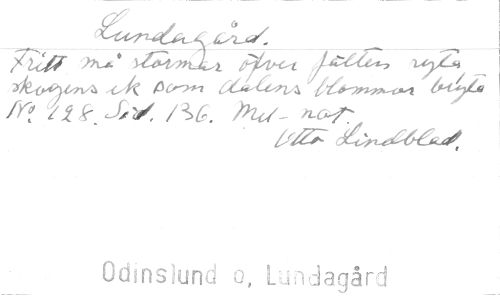 Lundagård.
Fritt må stormar öfver fälten ryta
skogens ek som dalens blommor bryta
No. 128. Sid. 136. Mel-not.
Otto Lindblad.
Odinslund o, Lundagård